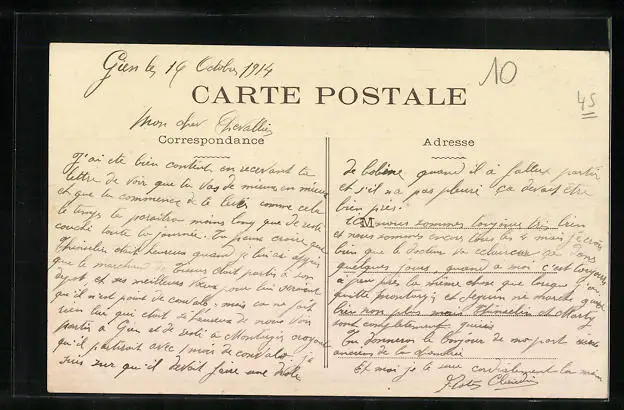 Gien le 14 Octobre 1914
10
CARTE POSTALE
45
Mon cher Chevallier
Correspondance
J'ai été bien content en recevant ta
lettre de voir que tu vas de mieux en mieux
et que tu commence de te lever comme cela
le temps te paraîtra moins long que de rester
couché toute la journée. Tu peux croire que
était heureux quand je lui ai appris
que le marchand de était parti à son
dépot, et ses meilleurs
qu'il n'est point de convalo, mais ça ne fait
rien lui qui était si heureux de nous voir
partir à Gien et de resté à Montargis croyant
qu'il partirait avec 1 mois de convalo, je
suis sur qu'il devait faire une drôle
Adresse
de bobine quand il a fallut partir
et s'il n'a pas pleuré ça devait être
bien près.
M
Ici nous sommes toujours très bien
et nous sommes encore tous les 4 mais je crois
bien que le docteur va ça dans
quelques jours quand à moi c'est toujours
à peu près la même chose que lorsque j'ai
quitté Montargis et depuis ne marche guère
bien non plus mais et Marty
sont complètement guéris
Tu donneras le bonjour de ma part aux
anciens de la chambre
Et moi je te serre cordialement la main